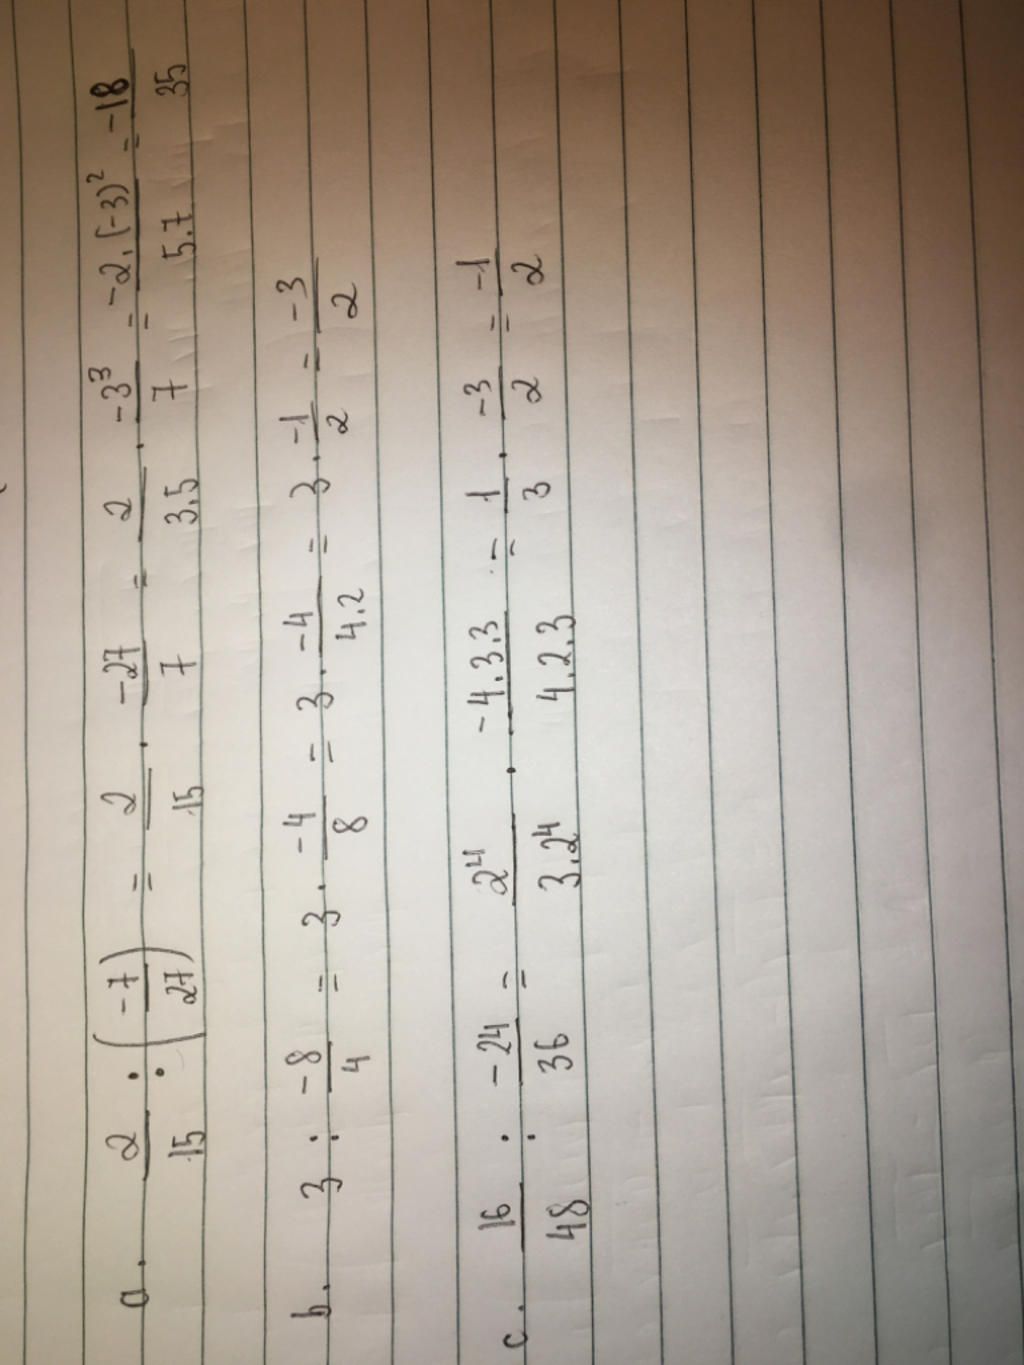 a. 2/15 : (-7/27) = 2/15 . -27/7 = 2/3.5 . -3³/7 = -2.(-3)²/5.7 = -18/35
b. 3 : -8/4 = 3 . -4/8 = 3 . -4/4.2 = 3 . -1/2 = -3/2
c. 16/48 : -24/36 = 2⁴/3.2⁴ . -4.3.3/4.2.3 = 1/3 . -3/2 = -1/2